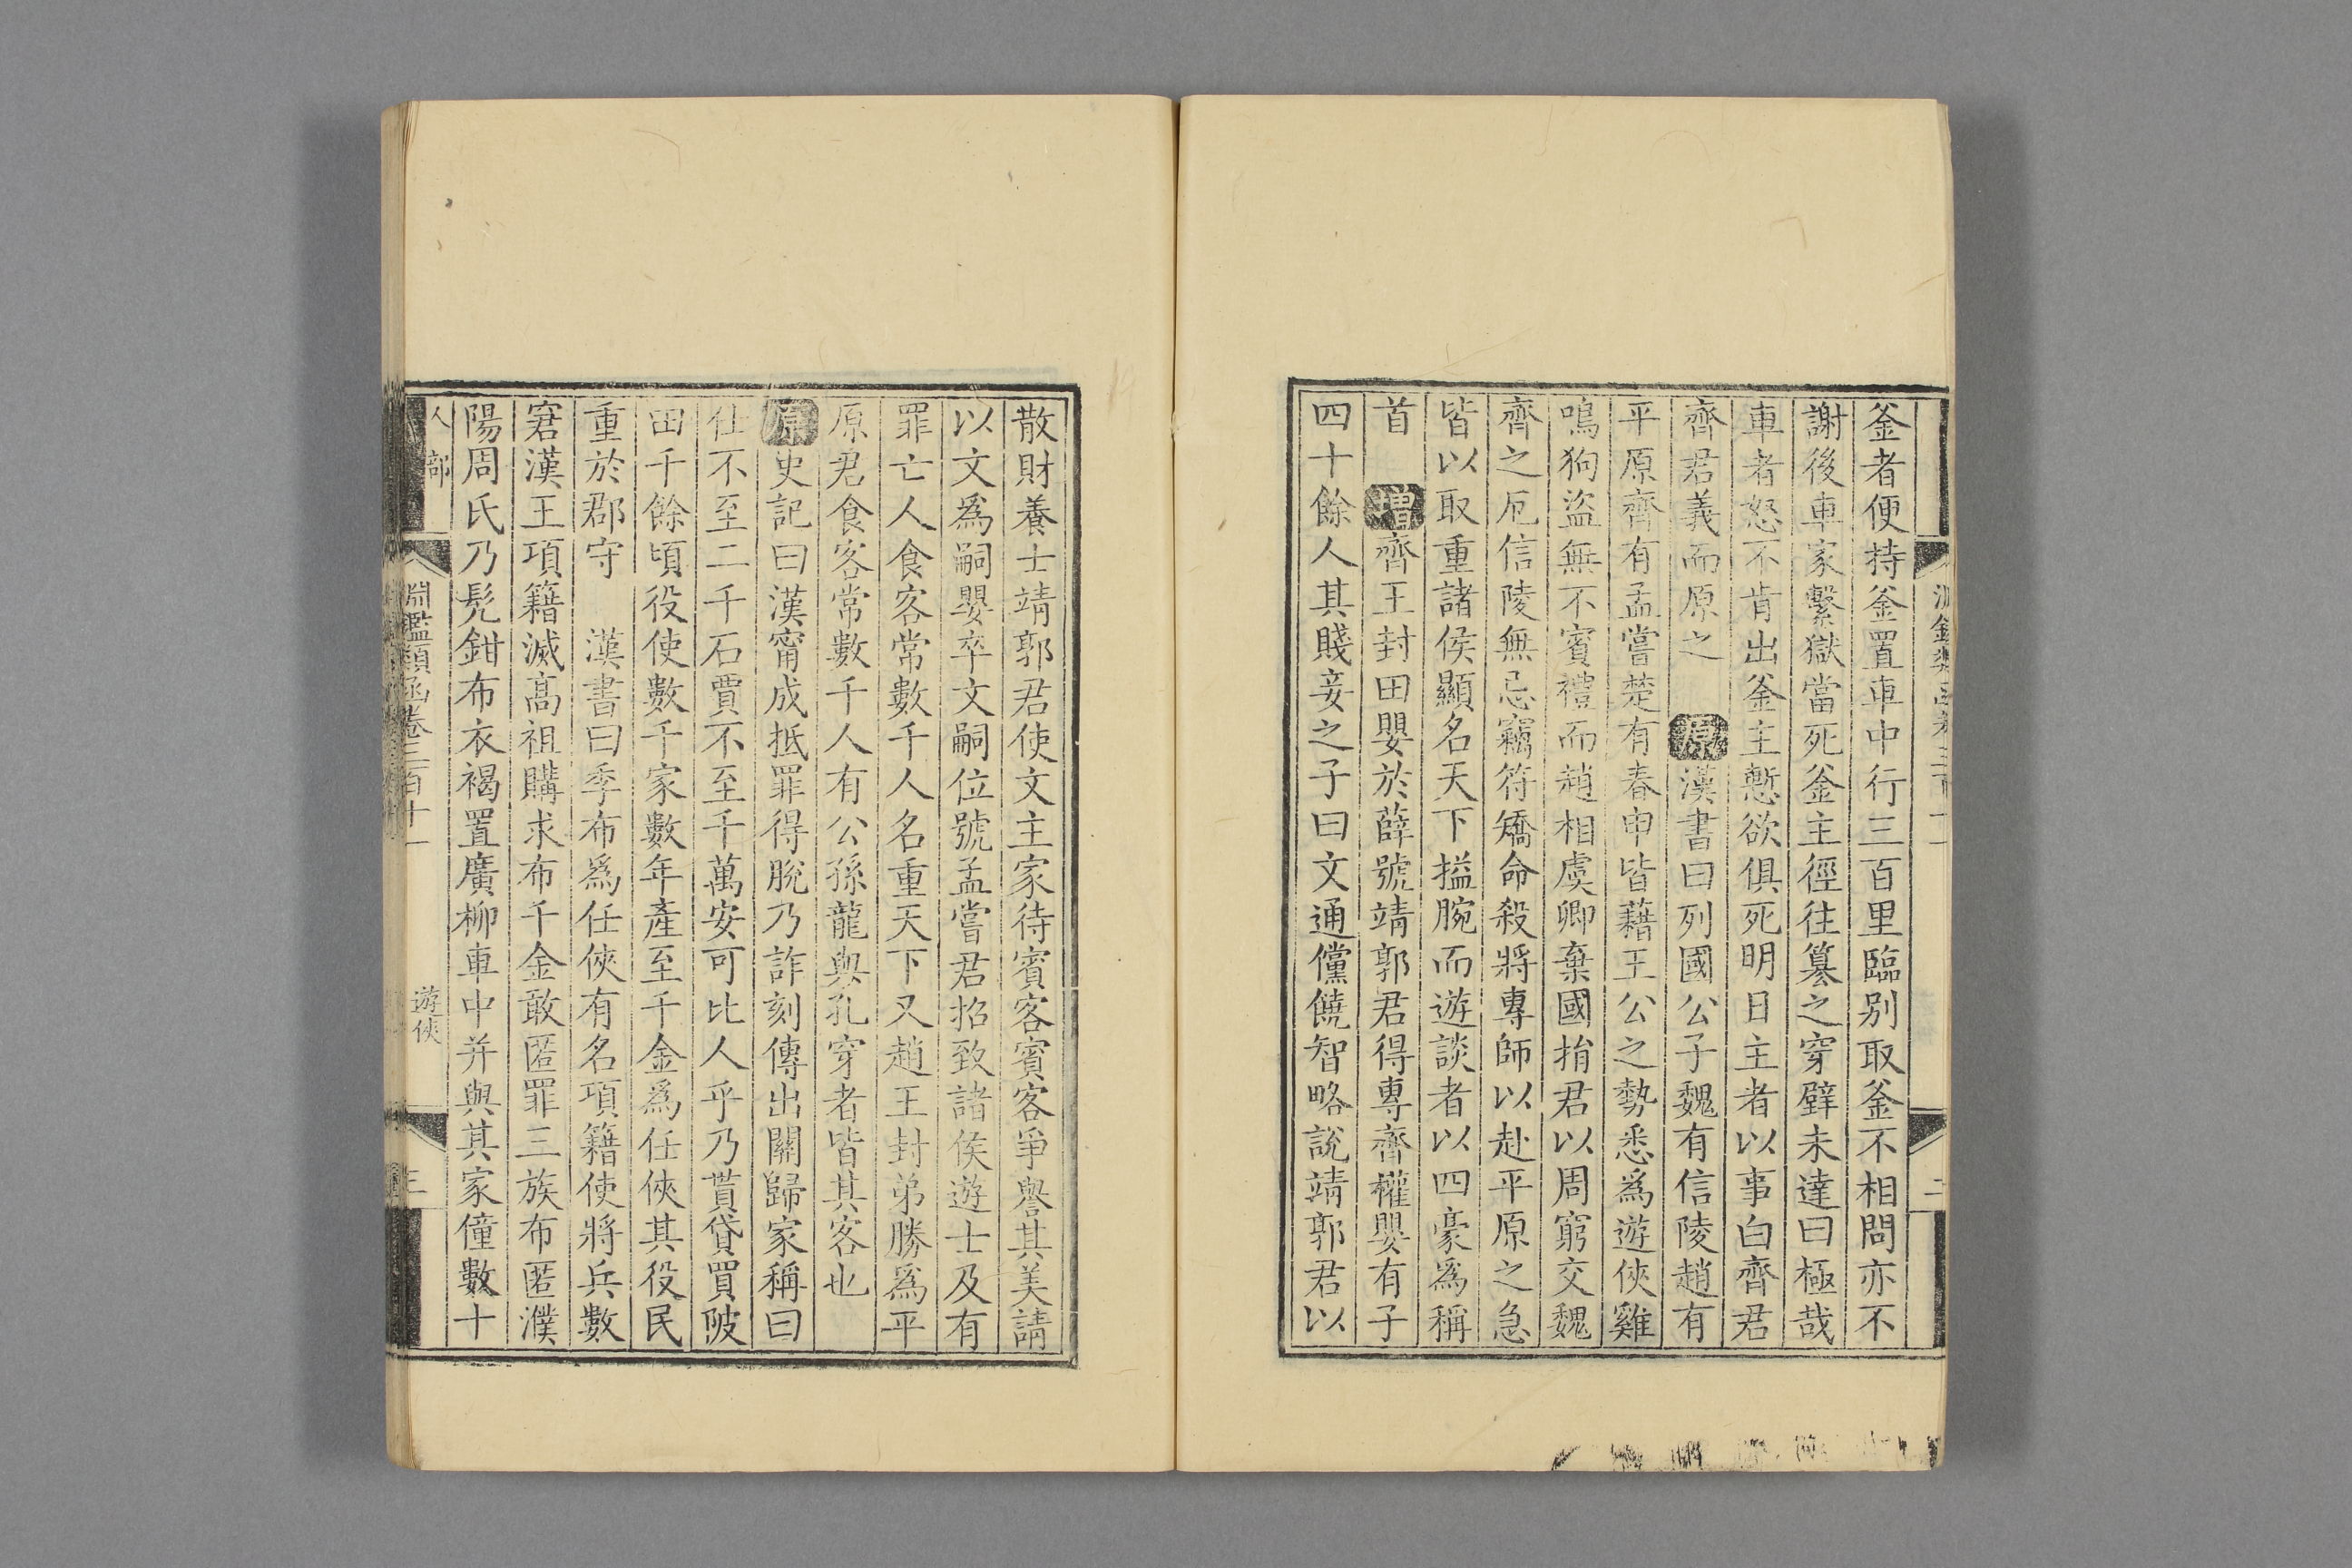 釜者便持釜置車中行三百里臨别取釜不相問亦不
謝後車家繫獄當死釜主徑往篡之穿壁未達曰極哉
車者怒不肯出釜主慙欲俱死明日主者以事白齊君
齊君義而原之 原漢書曰列國公子魏有信陵趙有
平原齊有孟嘗楚有春申皆藉王公之勢悉爲遊俠雞
鳴狗盜無不賓禮而趙相虞卿棄國捐君以周窮交魏
齊之厄信陵無忌竊符矯命殺將專師以赴平原之急
皆以取重諸侯顯名天下搤腕而遊談者以四豪爲稱
首 增齊王封田嬰於薛號靖郭君得專齊權嬰有子
四十餘人其賤妾之子曰文通儻饒智略說靖郭君以
散財養士靖郭君使文主家待賓客賓客爭譽其美請
以文爲嗣嬰卒文嗣位號孟嘗君招致諸侯遊士及有
罪亡人食客常數千人名重天下又趙王封弟勝爲平
原君食客常數千人有公孫龍與孔穿者皆其客也
原史記曰漢甯成抵罪得脫乃詐刻傳出關歸家稱曰
仕不至二千石賈不至千萬安可比人乎乃貰貸買陂
田千餘頃役使數千家數年產至千金爲任俠其役民
重於郡守 漢書曰季布爲任俠有名項籍使將兵數
窘漢王項籍滅高祖購求布千金敢匿罪三族布匿濮
陽周氏乃髡鉗布衣褐置廣柳車中并與其家僮數十
人部 淵鑑類函卷三百十一 遊俠 三